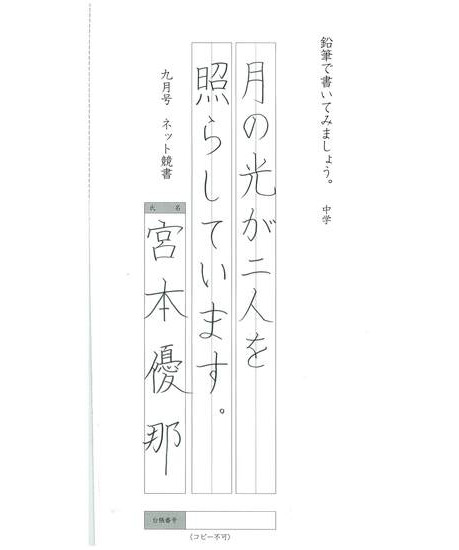 鉛筆で書いてみましょう。 中学
月の光が二人を
照らしています。
九月号 ネット競書
氏名
宮本優那
台帳番号
(コピー不可)